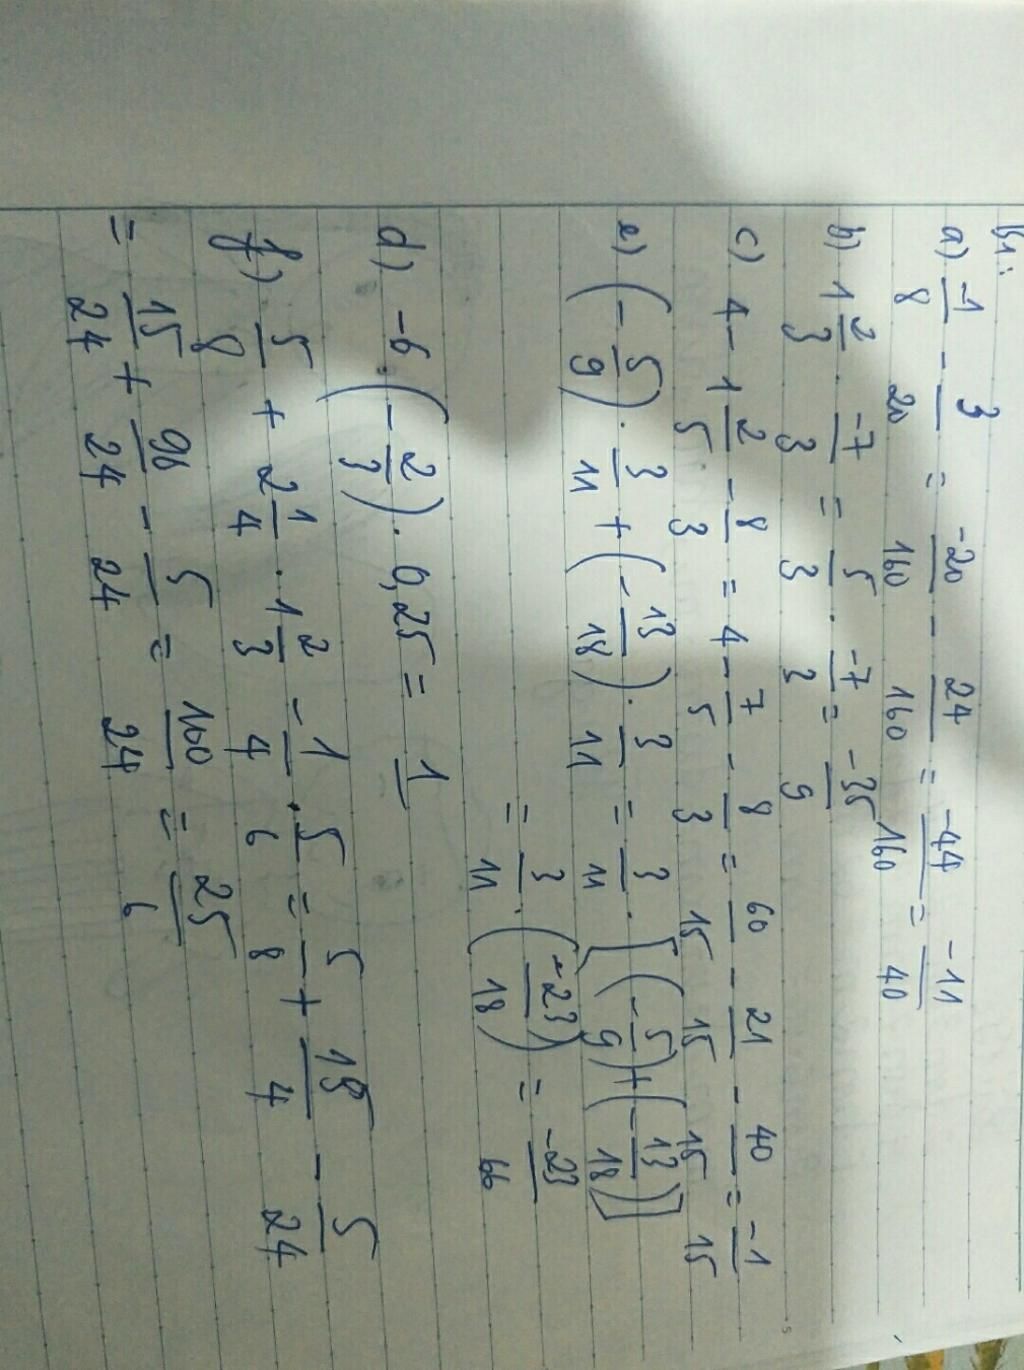 B1:
a) -1/8 - 3/20 = -20/160 - 24/160 = -44/160 = -11/40
b) 1 2/3 . -7/3 = 5/3 . -7/3 = -35/9
c) 4 - 1 2/5 - 8/3 = 4 - 7/5 - 8/3 = 60/15 - 21/15 - 40/15 = -1/15
e) (-5/9) . 3/11 + (-13/18) . 3/11 = 3/11 . [(-5/9) + (-13/18)]
= 3/11 . (-23/18) = -23/66
d) -6 . (-2/3) . 0,25 = 1
f) 5/8 + 2 1/4 . 1 2/3 - 1/4 . 5/6 = 5/8 + 15/4 - 5/24
= 15/24 + 90/24 - 5/24 = 100/24 = 25/6